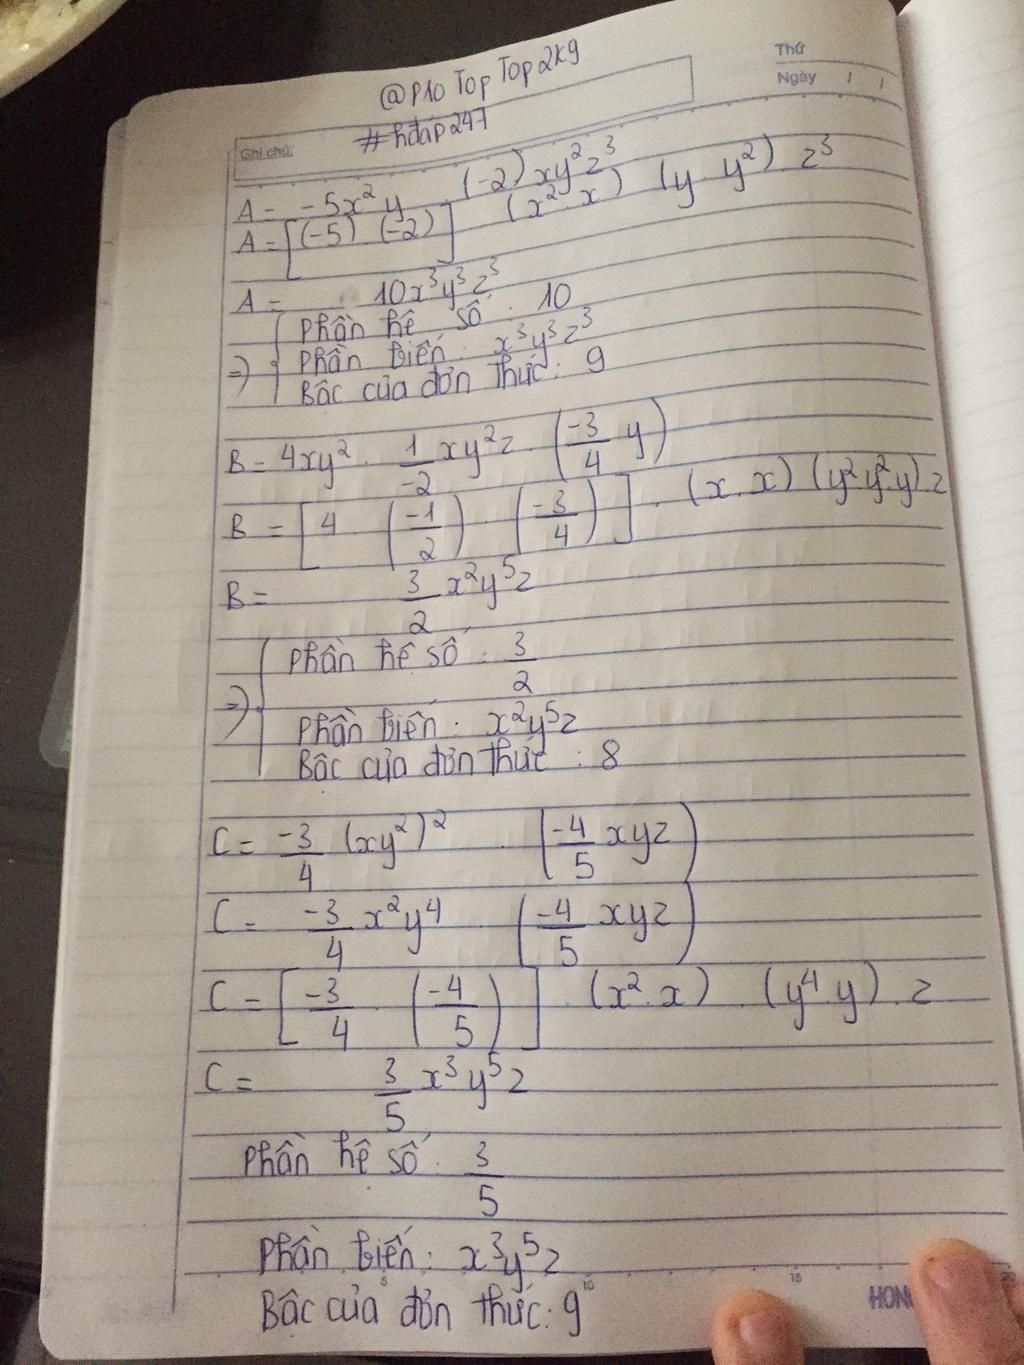 Thứ
Ngày / /
@P10 Top Top 2K9
#hđáp247
Ghi chú:
A = -5x²y (-2)xy²z³
A = [(-5) (-2)] (x².x) (y.y²) z³
A = 10x³y³z³
Phần hệ số : 10
=> Phần biến : x³y³z³
Bậc của đơn thức : 9
B = 4xy² . 1/-2 xy²z . (-3/4 y)
B = [4 (-1/2) . (-3/4)] . (x.x) (y².y².y) z
B = 3/2 x²y⁵z
Phần hệ số : 3/2
=> Phần biến : x²y⁵z
Bậc của đơn thức : 8
C = -3/4 (xy²)² . (-4/5 xyz)
C = -3/4 x²y⁴ . (-4/5 xyz)
C = [-3/4 . (-4/5)] . (x².x) . (y⁴.y) . z
C = 3/5 x³y⁵z
Phần hệ số : 3/5
Phần biến : x³y⁵z
Bậc của đơn thức : 9
5 10 15 20
HONG